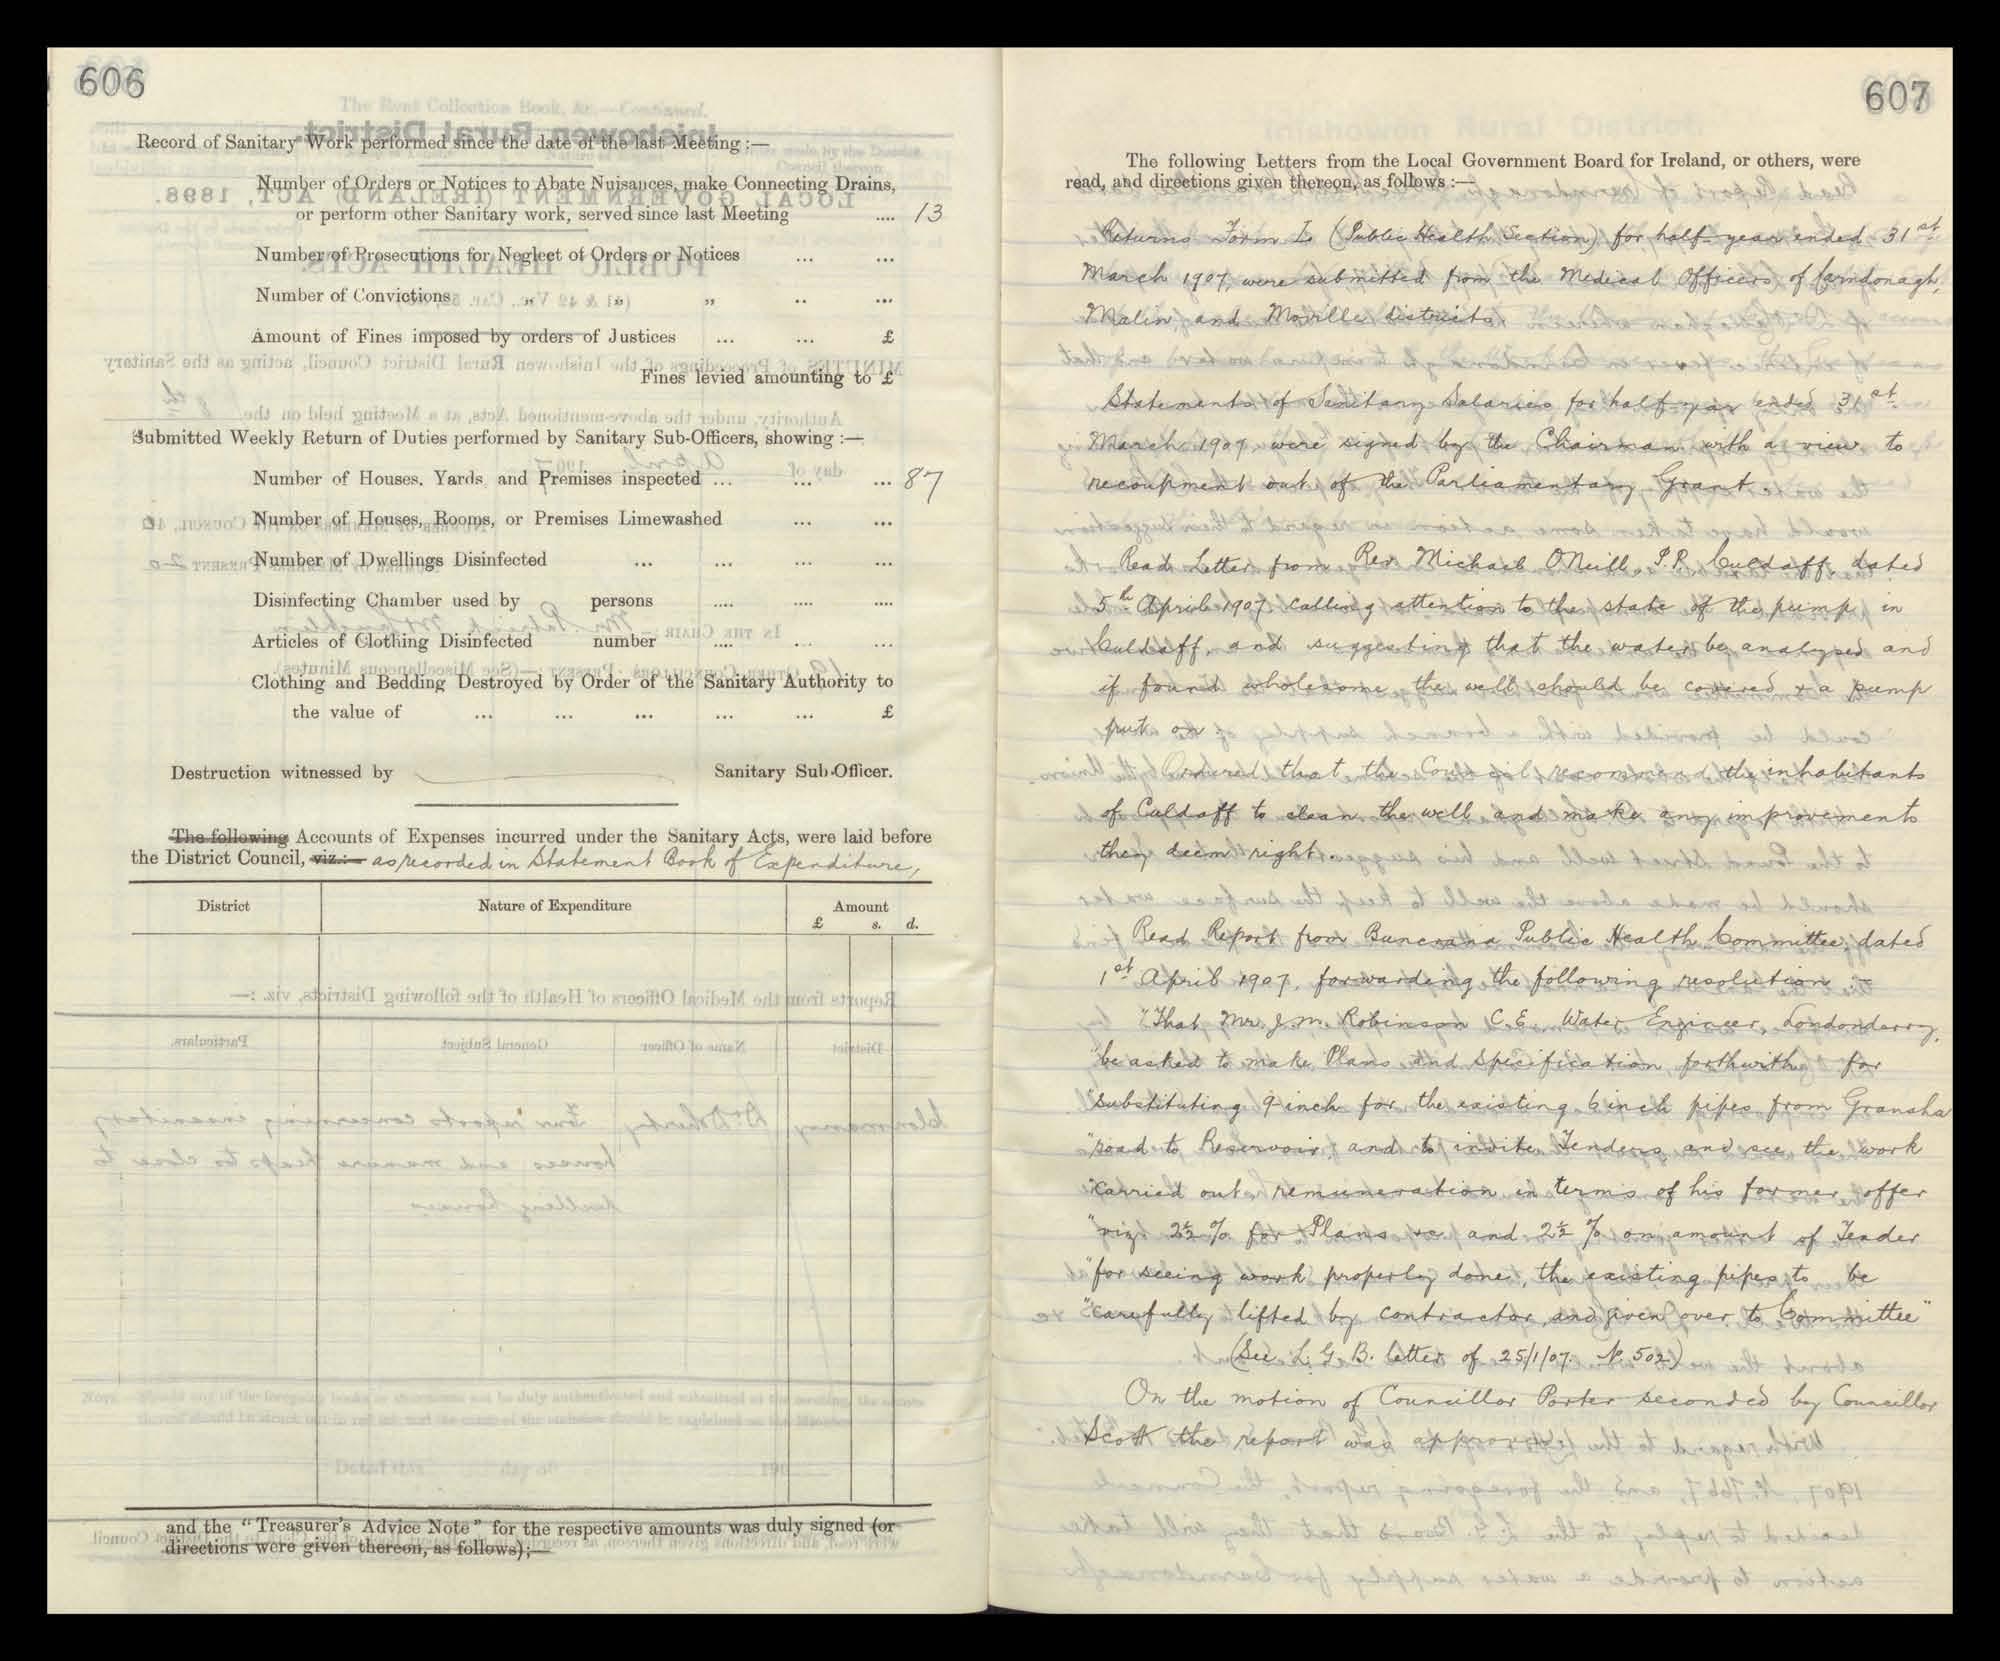 606
Record of Sanitary Work performed since the date of the last Meeting :—
Number of Orders or Notices to Abate Nuisances, make Connecting Drains,
or perform other Sanitary work, served since last Meeting .... 13
Number of Prosecutions for Neglect of Orders or Notices ... ...
Number of Convictions „ „ „ .. ...
Amount of Fines imposed by orders of Justices ... ... £
Fines levied amounting to £
Submitted Weekly Return of Duties performed by Sanitary Sub-Officers, showing :—
Number of Houses, Yards and Premises inspected ... ... ... 87
Number of Houses, Rooms, or Premises Limewashed ... ...
Number of Dwellings Disinfected ... ... ... ...
Disinfecting Chamber used by persons .... .... ....
Articles of Clothing Disinfected number .... ... ...
Clothing and Bedding Destroyed by Order of the Sanitary Authority to
the value of ... ... ... ... ... £
Destruction witnessed by Sanitary Sub-Officer.
The following Accounts of Expenses incurred under the Sanitary Acts, were laid before
the District Council, viz.:— as recorded in Statement Book of Expenditure,
District Nature of Expenditure Amount
£ s. d.
and the "Treasurer's Advice Note" for the respective amounts was duly signed (or
directions were given thereon, as follows);—
607
The following Letters from the Local Government Board for Ireland, or others, were
read, and directions given thereon, as follows :—
Returns Form I. (Public Health Section) for half-year ended 31st
March 1907, were submitted from the Medical Officers of Carndonagh,
Malin, and Moville districts.
Statements of Sanitary Salaries for half year ended 31st
March 1907 were signed by the Chairman with a view to
recoupment out of the Parliamentary Grant.
Read Letter from Rev Michael O'Neill, P.P. Culdaff, dated
5th April 1907 calling attention to the state of the pump in
Culdaff, and suggesting that the water be analysed and
if found wholesome the well should be covered & a pump
put on
Ordered that the Council recommend the inhabitants
of Culdaff to clean the well and make any improvements
they deem right.
Read Report from Buncrana Public Health Committee, dated
1st April 1907, forwarding the following resolution :—
"That Mr. J. M. Robinson C.E., Water Engineer, Londonderry,
"be asked to make Plans and specification forthwith for
"substituting 9-inch for the existing 6 inch pipes from Gransha
"road to Reservoir, and to invite Tenders and see the work
"carried out, remuneration in terms of his former offer
"viz 2½ % for Plans &c and 2½ % on amount of Tender
"for seeing work properly done, the existing pipes to be
"carefully lifted by contractor, and given over to Committee"
(See L. G. B. letter of 25/1/07. N. 502)
On the motion of Councillor Porter seconded by Councillor
Scott the report was approved.